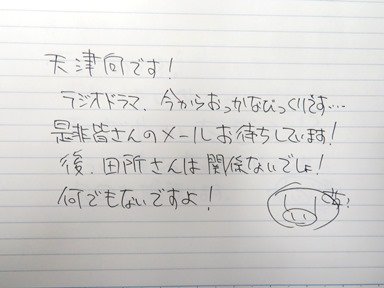 天津向です!
ラジオドラマ、今からおっかなびっくりです…
是非皆さんのメールお待ちしています!
後、田所さんは関係ないでしょ!
何でもないですよ!